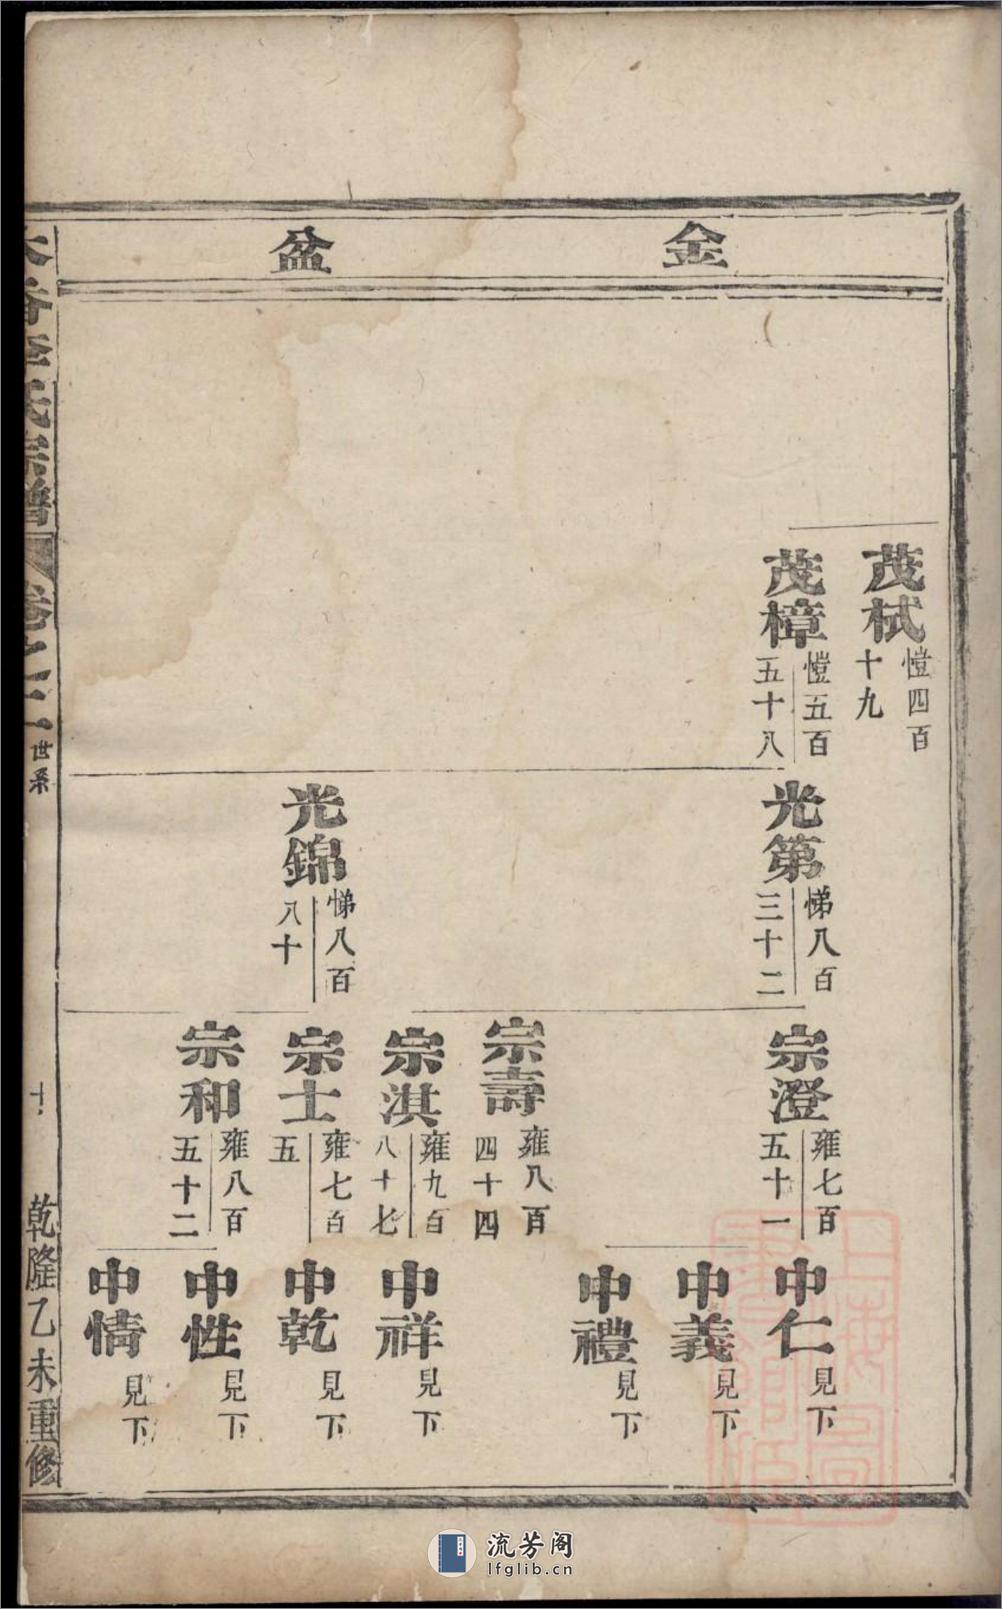 金盆
茂栻
愷四百
十九
茂樟
愷五百
五十八
光第
悌八百
三十二
光錦
悌八百
八十
宗澄
雍七百
五十一
宗壽
雍八百
四十四
宗淇
雍九百
八十七
宗士
雍七百
五
宗和
雍八百
五十二
中仁
見下
中義
見下
中禮
見下
中祥
見下
中乾
見下
中性
見下
中情
見下
李氏宗譜
卷之三
世系
十
乾隆乙未重修
流芳阁
lfglib.cn